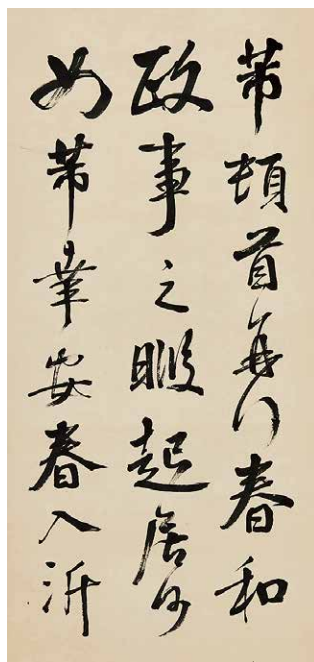 芾頓首春和
政事之暇起居何
如芾幸安春入沂